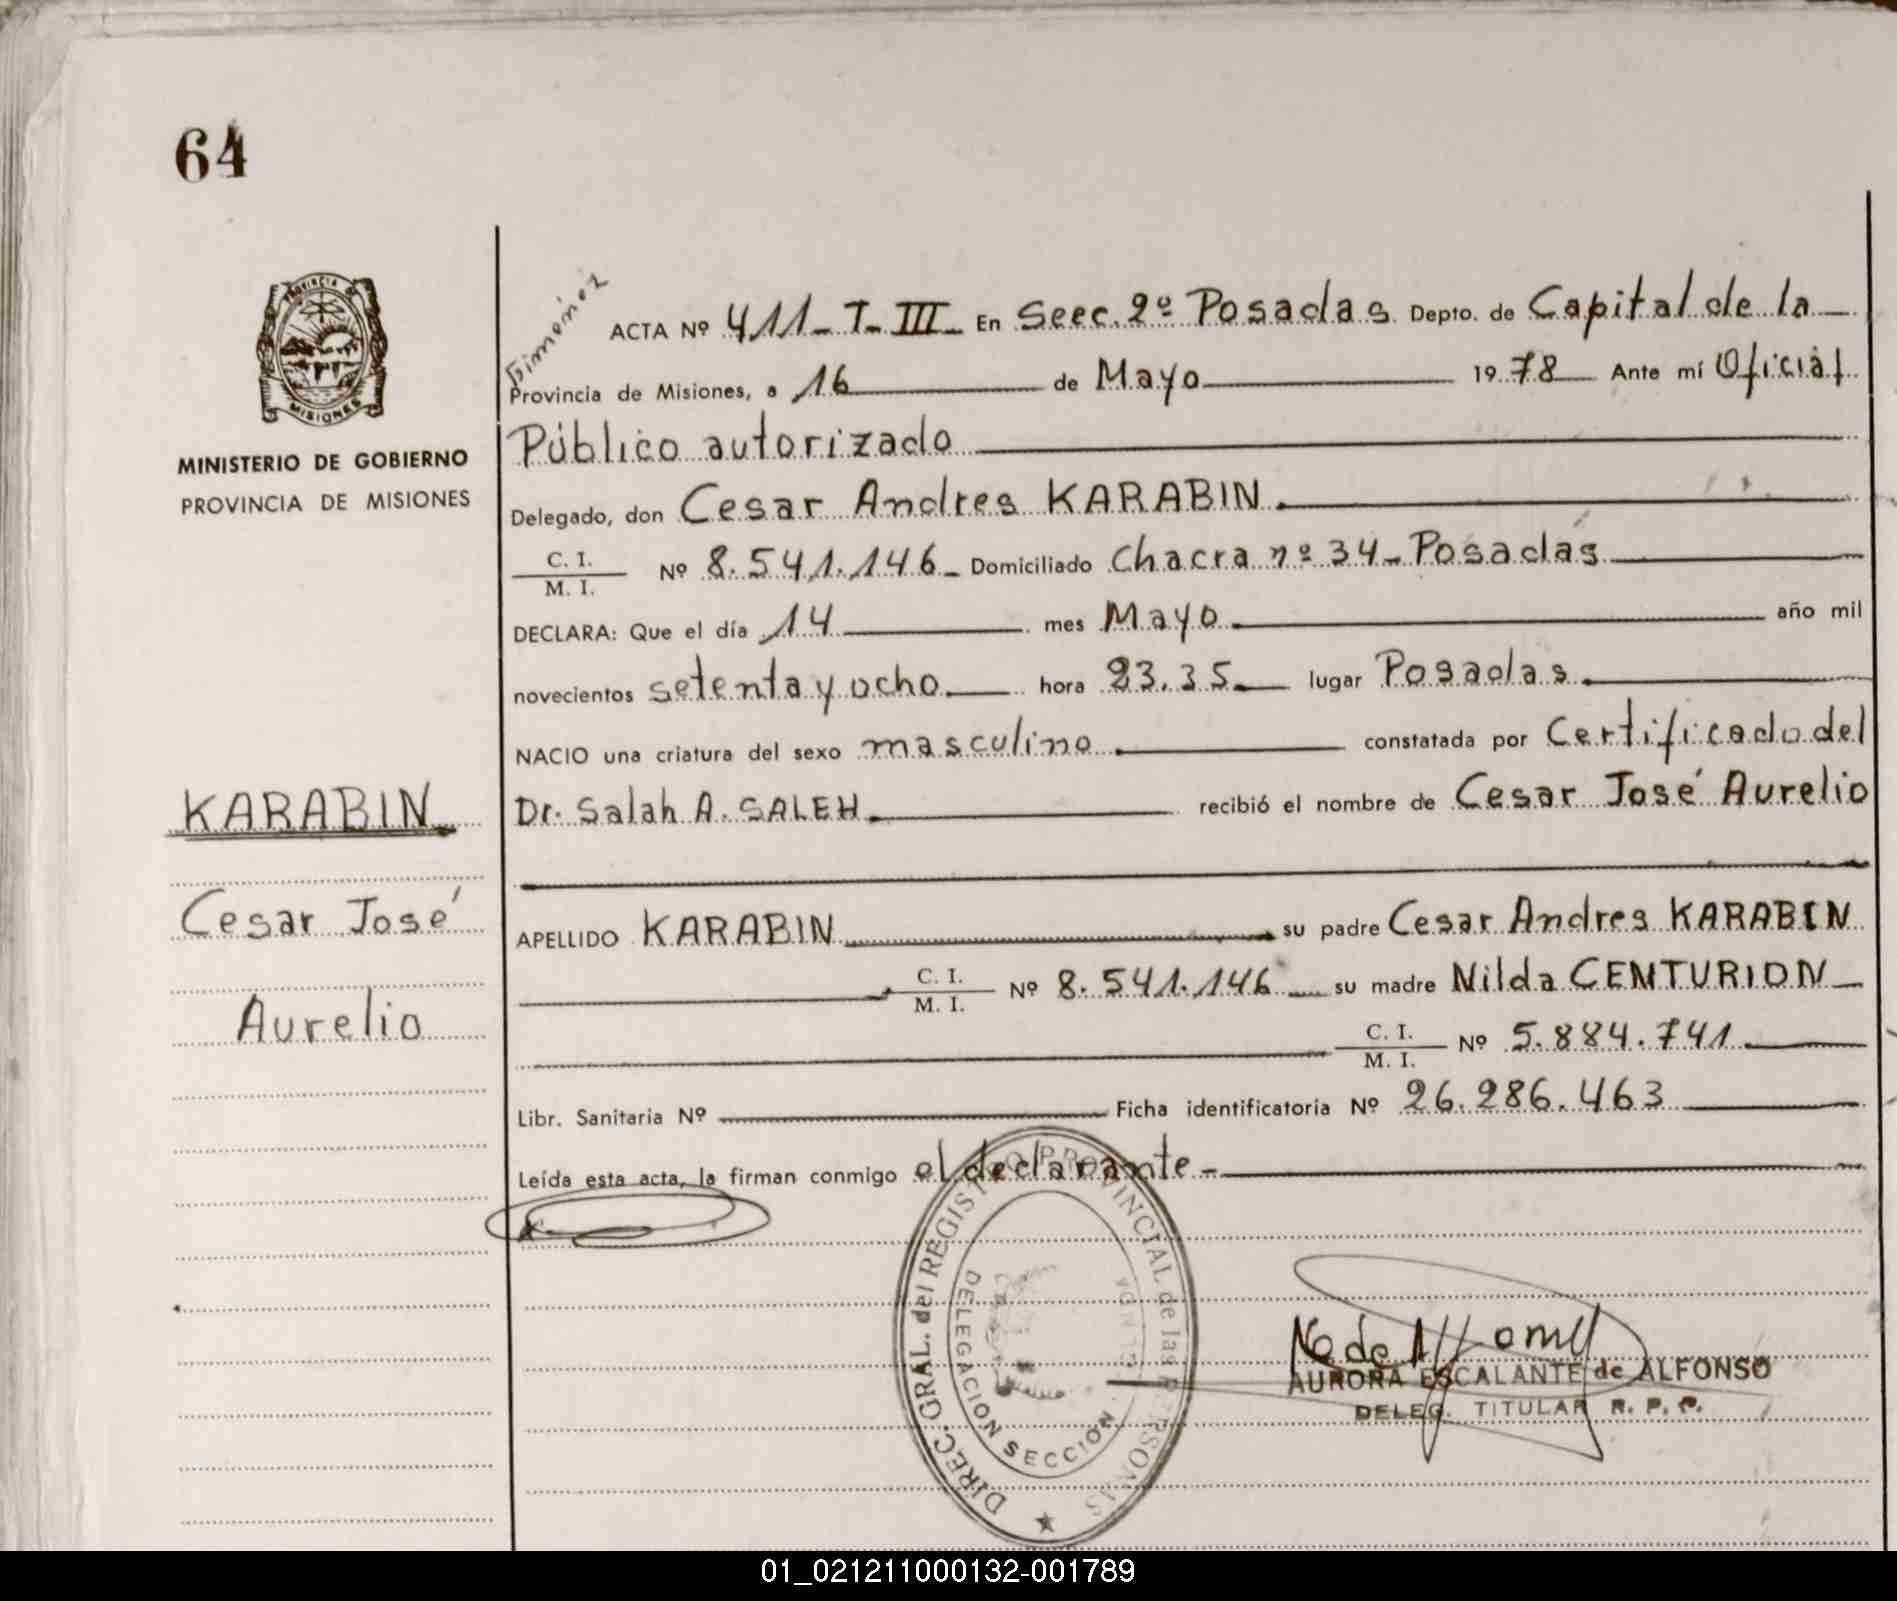 64
PROVINCIA DE
MISIONES
MINISTERIO DE GOBIERNO
PROVINCIA DE MISIONES
KARABIN
Cesar José
Aurelio
Gimenez
ACTA Nº 411 - T - III - En Secc. 2º Posadas Depto. de Capital de la
Provincia de Misiones, a 16 de Mayo 19 78 Ante mí Oficial
Público autorizado
Delegado, don Cesar Andres KARABIN.
C. I.
M. I. Nº 8.541.146 - Domiciliado Chacra nº 34 - Posadas
DECLARA: Que el día 14 mes Mayo año mil
novecientos setenta y ocho hora 23.35 lugar Posadas
NACIO una criatura del sexo masculino constatada por Certificado del
Dr. Salah A. SALEH recibió el nombre de Cesar José Aurelio
APELLIDO KARABIN su padre Cesar Andres KARABIN
C. I.
M. I. Nº 8.541.146 su madre Nilda CENTURION
C. I.
M. I. Nº 5.884.741
Libr. Sanitaria Nº Ficha identificatoria Nº 26.286.463
Leída esta acta, la firman conmigo el declarante -
DIREC. GRAL. del REGISTRO PROVINCIAL de las PERSONAS
DELEGACION SECCION
AURORA ESCALANTE de ALFONSO
DELEG. TITULAR R. P. P.
01_021211000132-001789